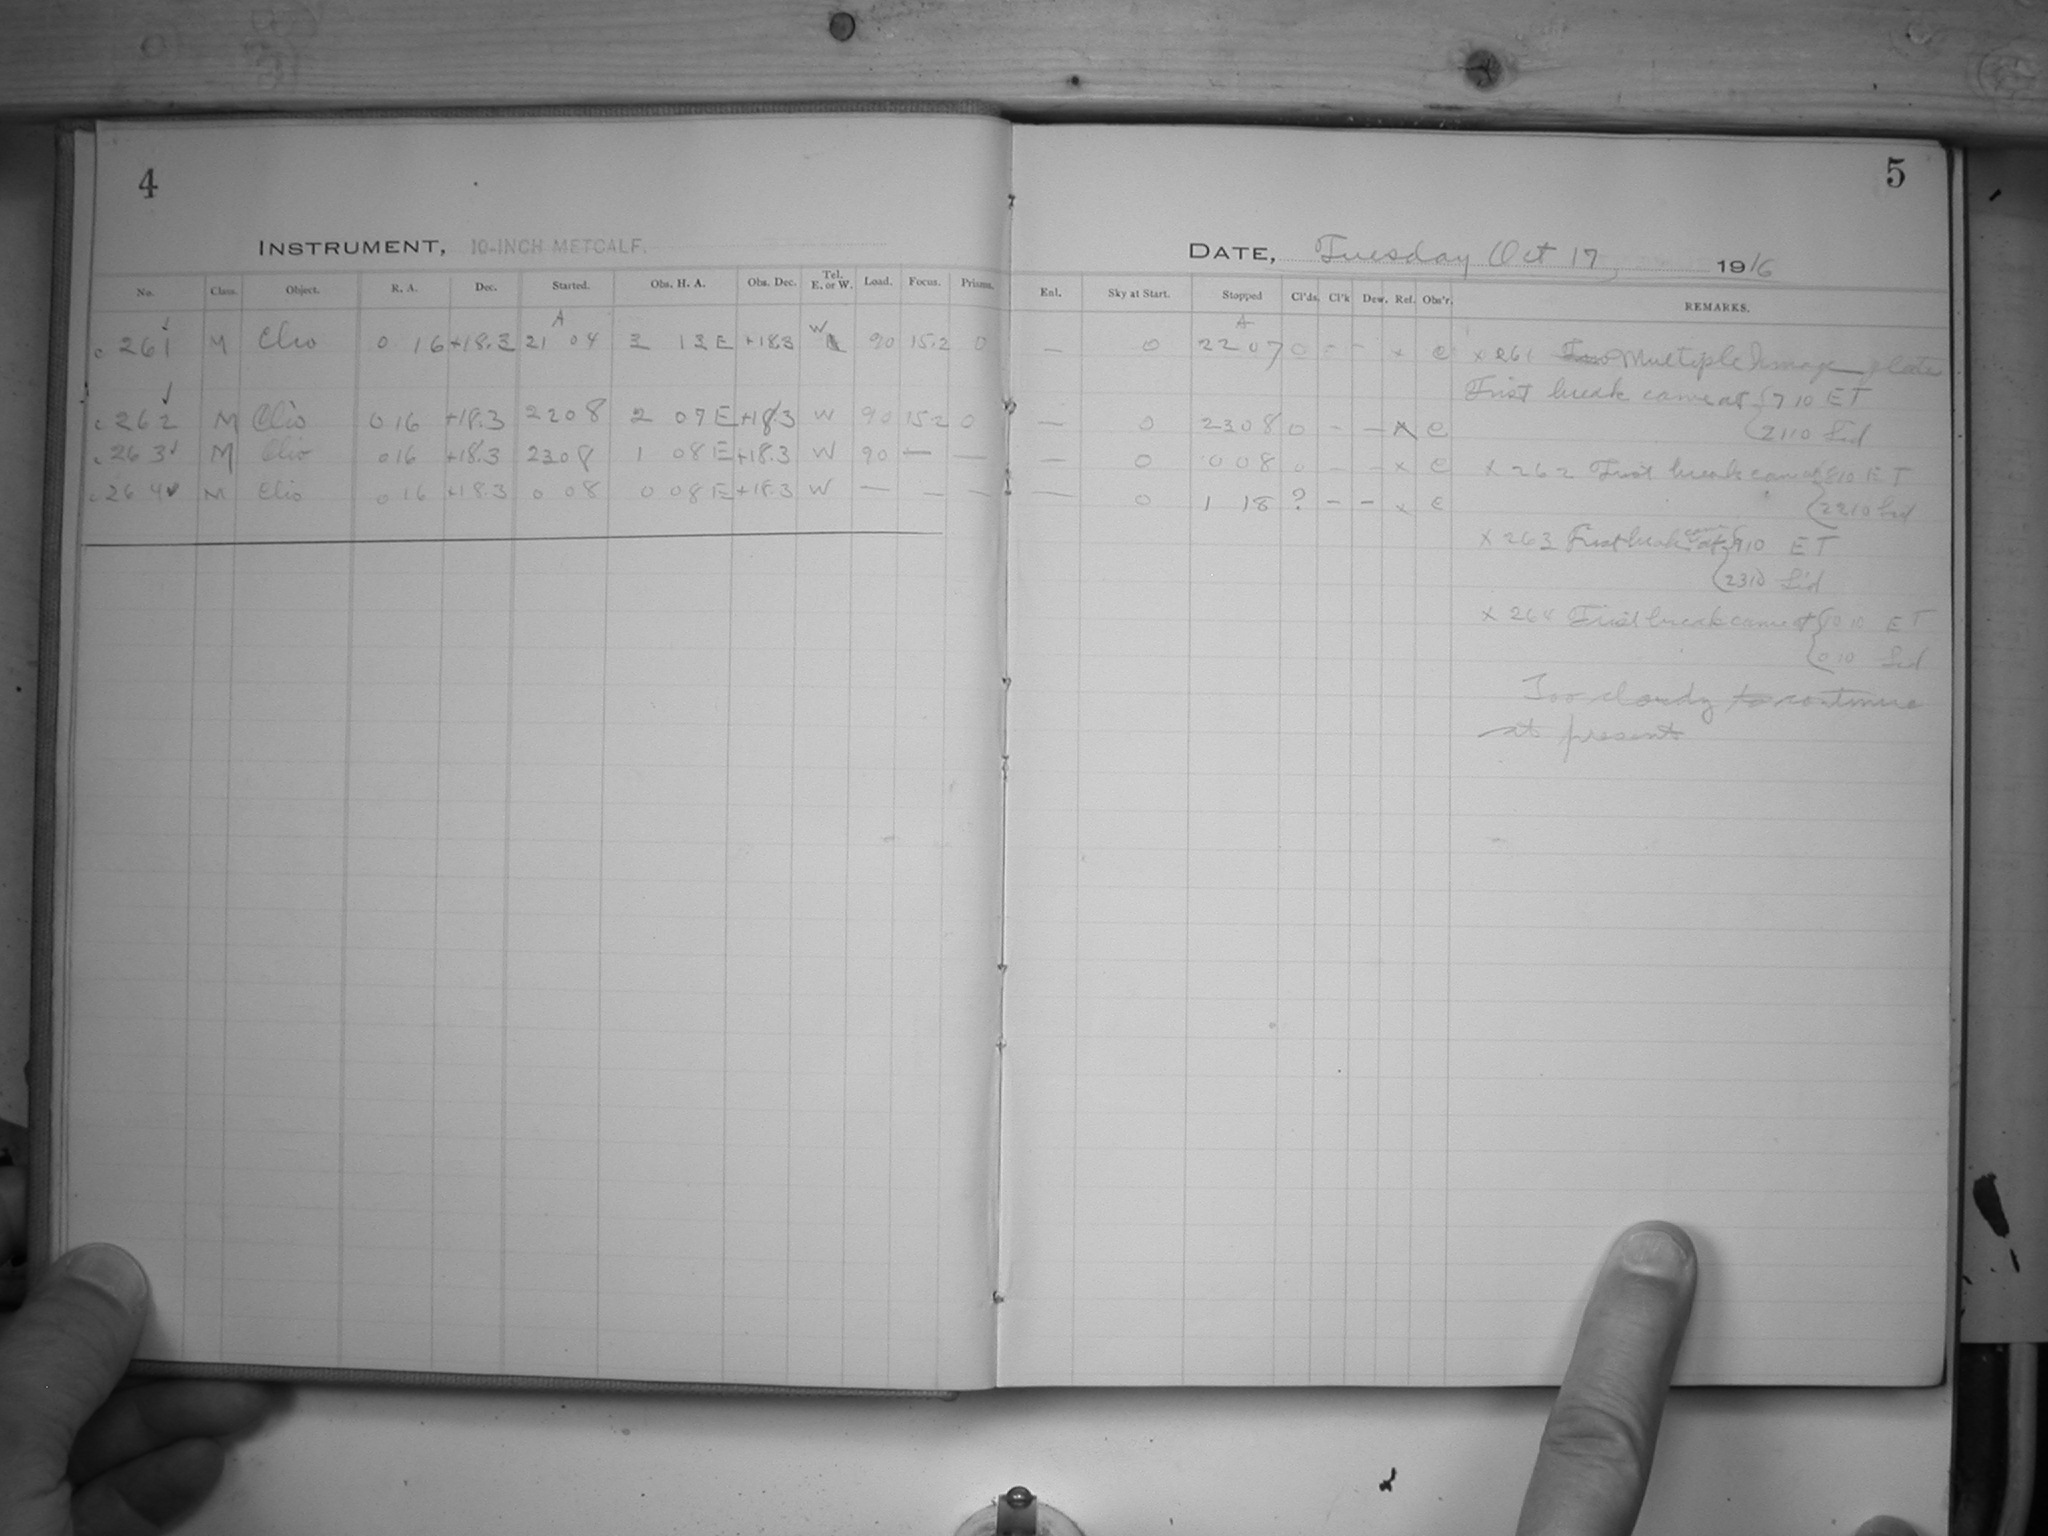 4
INSTRUMENT, 10-INCH METCALF.
No. Class. Object. R. A. Dec. Started. Obs. H. A. Obs. Dec. Tel. E. or W. Load. Focus. Prisms.
A
c 261 M Clio 0 16 +18.3 21 04 3 13 E +18.3 W 90 15.2 0
c 262 M Clio 0 16 +18.3 22 08 2 07 E +18.3 W 90 15.2 0
c 263 M Clio 0 16 +18.3 23 08 1 08 E +18.3 W 90 — —
c 264 M Clio 0 16 +18.3 0 08 0 08 E +18.3 W — — —
5
DATE, Tuesday Oct 17, 1916
Enl. Sky at Start. Stopped Cl'ds. Cl'k Dew. Ref. Obs'r. REMARKS.
A
— 0 22 07 0 - - x C
— 0 23 08 0 - — x C
— 0 0 08 0 - — x C
— 0 1 18 ? — — x C
x 261 Multiple Image plate
First break came at { 7 10 ET
{ 21 10 Sid
x 262 First break came at { 8 10 ET
{ 22 10 Sid
x 263 First break came at { 9 10 ET
{ 23 10 Sid
x 264 First break came at { 10 10 ET
{ 0 10 Sid
Too cloudy to continue
at present